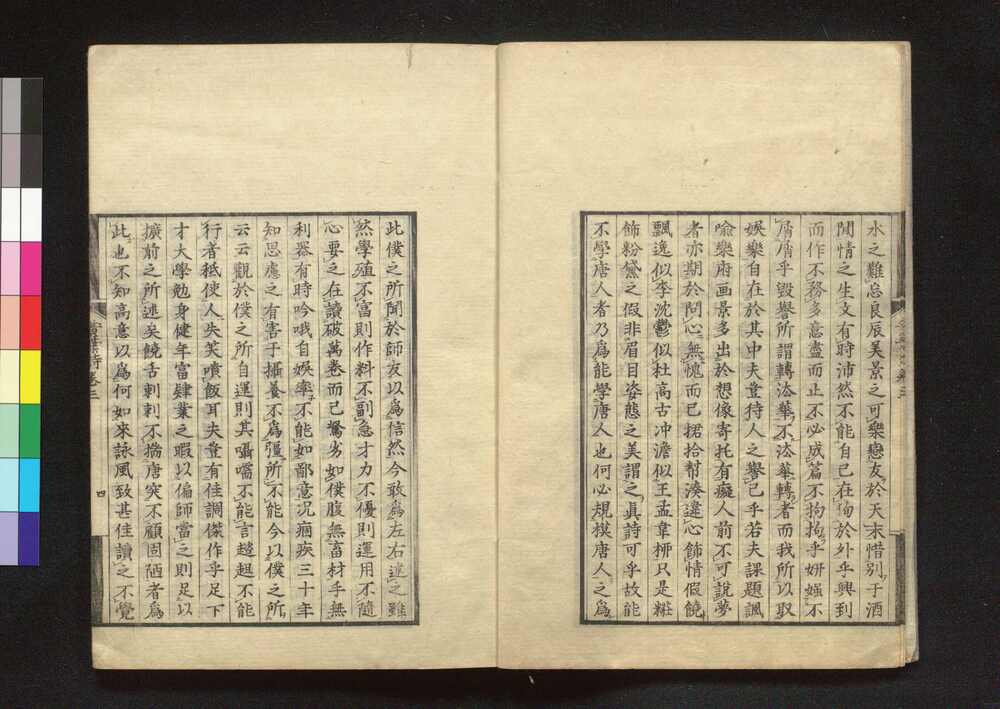 水之難忘良辰美景之可樂戀友於天末惜別于酒
間情之生文有時沛然不能自已在殉於外乎興到
而作不務多意盡而止不必成篇不拘拘乎妍媸不
屑屑乎毀譽所謂轉法華不法華轉者而我所以取
娛樂自在於其中夫豈待人之譽已乎若夫課題諷
喩樂府画景多出於想像寄托有癡人前不可說夢
者亦期於問心無愧而已捃拾幇湊違心飾情假饒
飄逸似李沈鬱似杜高古冲澹似王孟韋栁只是粧
飾粉黛之假非眉目姿態之美謂之眞詩可乎故能
不學唐人者乃爲能學唐人也何必規模唐人之爲
此僕之所聞於師友以爲信然今敢爲左右達之雖
然學殖不富則作料不副急才力不優則運用不隨
心要之在讀破萬卷而已駑劣如僕腹無畜材手無
利器有時吟哦自娛率不能如鄙意况痼疾三十年
知思慮之有害于攝養不爲彊所不能今以僕之所
云云觀於僕之所自運則其囁嚅不能言趑趄不能
行者秪使人失笑噴飯耳夫豈有佳調傑作乎足下
才大學勉身健年富肄業之暇以偏師當之則足以
擴前之所述矣饒舌剌剌不揣唐突不顧固陋者爲
此也不知高意以爲何如來詠風致甚佳讀之不覺
詩卷三
四